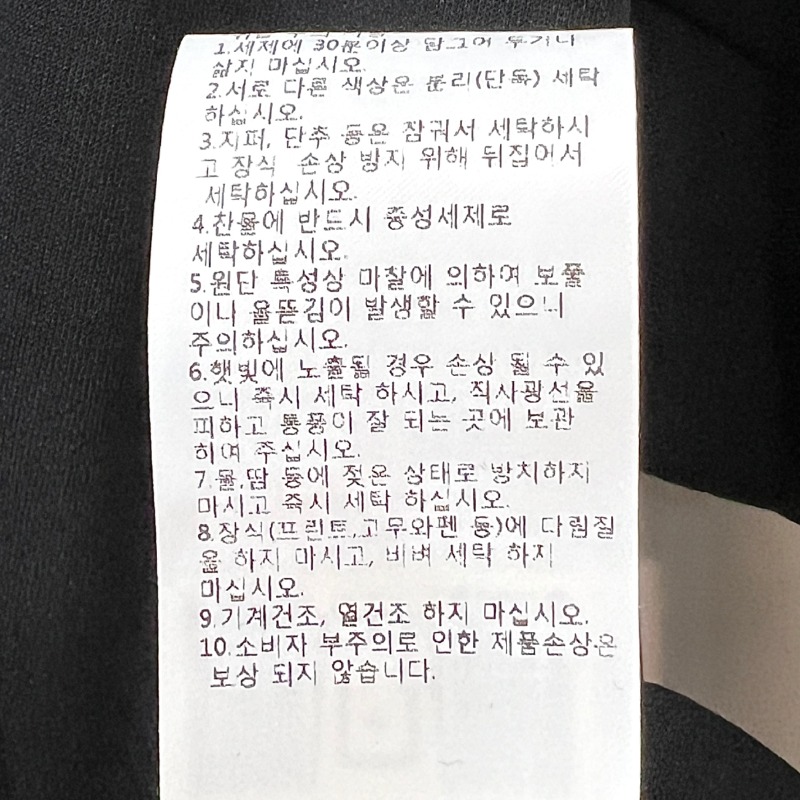 1.세제에 30분이상 담그어 두거나
삶지 마십시오.
2.서로 다른 색상은 분리(단독) 세탁
하십시오.
3.지퍼, 단추 등은 잠궈서 세탁하시
고 장식 손상 방지 위해 뒤집어서
세탁하십시오.
4.찬물에 반드시 중성세제로
세탁하십시오.
5.원단 특성상 마찰에 의하여 보풀
이나 올뜯김이 발생할 수 있으니
주의하십시오.
6.햇빛에 노출될 경우 손상 될 수 있
으니 즉시 세탁 하시고, 직사광선을
피하고 통풍이 잘 되는 곳에 보관
하여 주십시오.
7.물,땀 등에 젖은 상태로 방치하지
마시고 즉시 세탁 하십시오.
8.장식(프린트,고무와펜 등)에 다림질
을 하지 마시고, 비벼 세탁 하지
마십시오.
9.기계건조, 열건조 하지 마십시오.
10.소비자 부주의로 인한 제품손상은
보상 되지 않습니다.